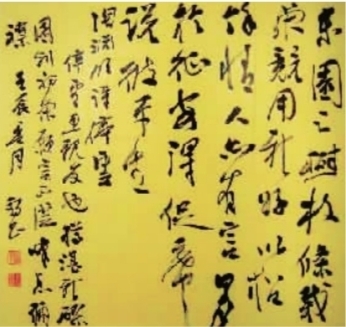 東園之樹枝條載
榮競用新好以怡
余情人亦有言日月
於征安得促席
說彼平生
陶淵明詩停雲
停雲思親友也樽湛新醪
園列初榮願言不從嘆息彌
襟 壬辰春月